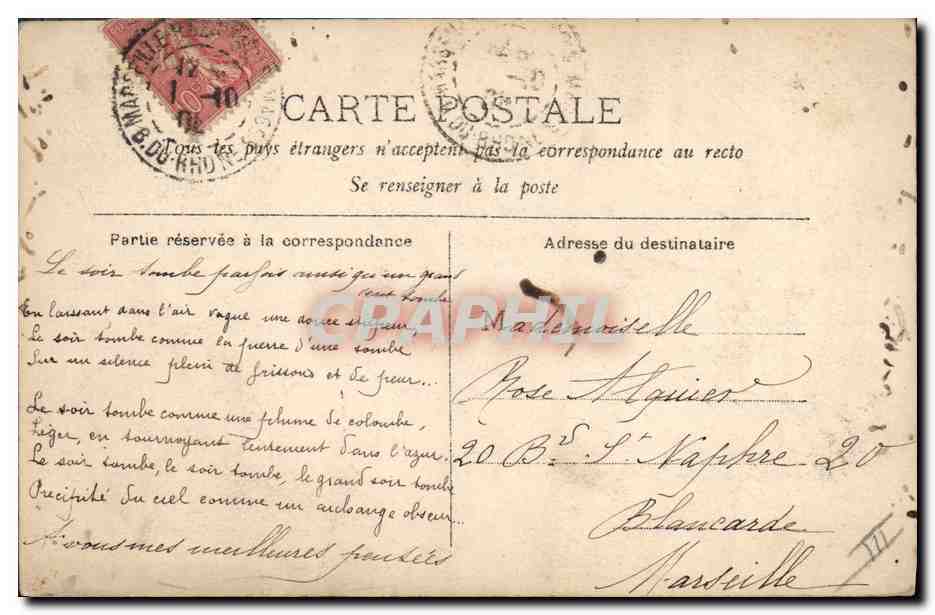 MARSEILLE
17
1 -10
04
B. DU-RHONE
B. DU-RHONE
CARTE POSTALE
Tous les pays étrangers n'acceptent pas la correspondance au recto
Se renseigner à la poste
Partie réservée à la correspondance
Le soir tombe parfois ainsi qu'un grand
vent tombe
En laissant dans l'air vague une douce stupeur,
Le soir tombe comme la pierre d'une tombe
Sur un silence plein de frissons et de peur...
Le soir tombe comme une plume de colombe,
Léger, en tournoyant lentement dans l'azur.
Le soir tombe, le soir tombe, le grand soir tombe
Précipité du ciel comme un archange obscur...
A vous mes meilleures pensées
Adresse du destinataire
Mademoiselle
Rose Alquier
20 Bd St Naphre 20
Blancarde
Marseille
III
CPAPHIL